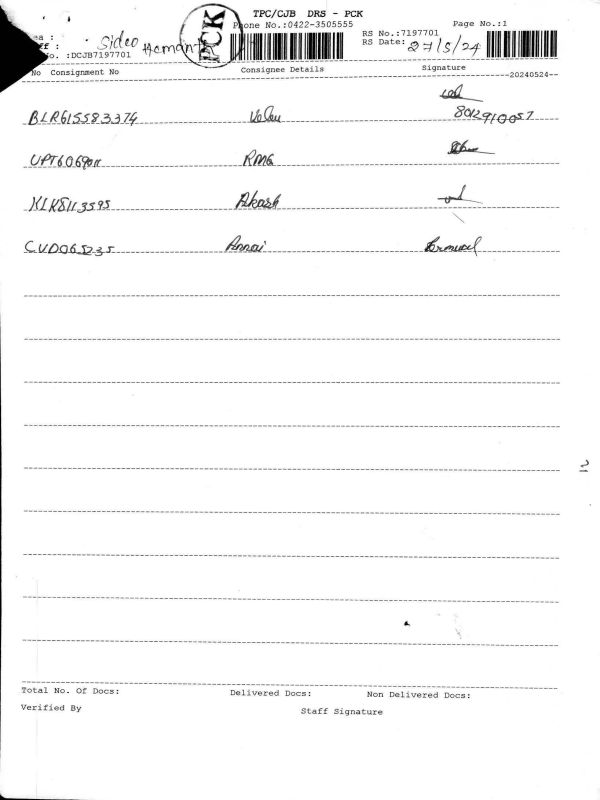 TPC/CJB DRS - PCK
Phone No.:0422-3505555
Page No.:1
PCK
RS No.:7197701
RS Date: 27/5/24
Sideo Heman
No. :DCJB7197701
No Consignment No Consignee Details Signature
20240524
BLR615583374 Velau 8012910057
UPT6069011 RMG
KLK8113595 Akash
CUD065235 Annai
Total No. Of Docs: Delivered Docs: Non Delivered Docs:
Verified By Staff Signature